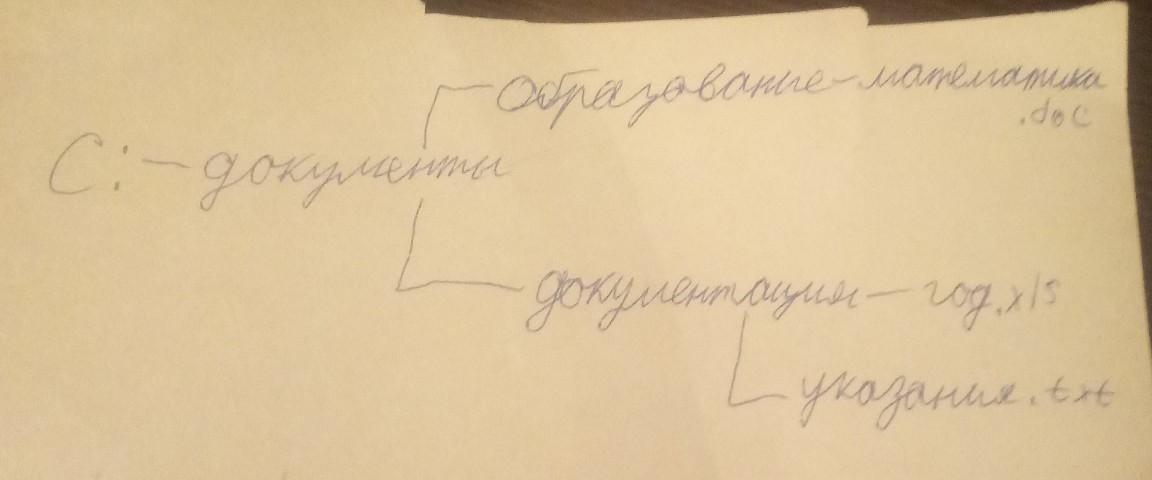 Образование - математика
.doc
C: - документы
документация - год.xls
указания.txt